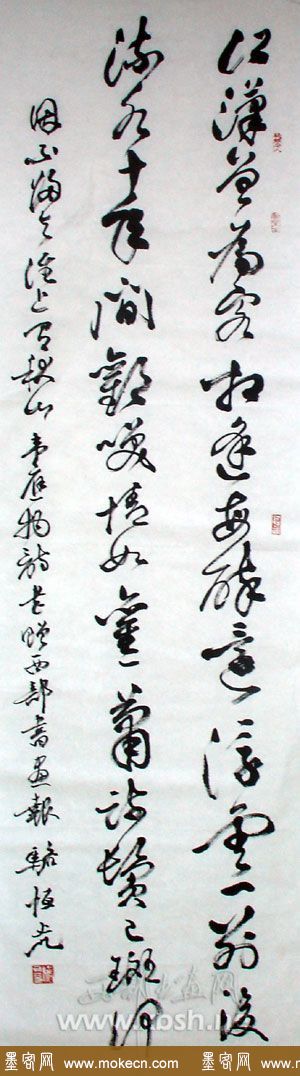 江漢曾為客相逢每醉還浮雲一別後
流水十年間歡笑情如舊蕭疏鬢已斑何
因不歸去淮上有秋山韋應物詩書贈西部書畫報駱恒光
墨客网 www.mokecn.com 墨客网